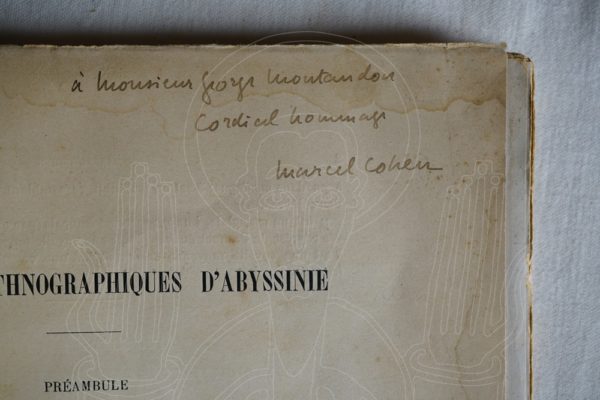 à Monsieur George Montandon
Cordial hommage
Marcel Cohen
THNOGRAPHIQUES D'ABYSSINIE
PRÉAMBULE